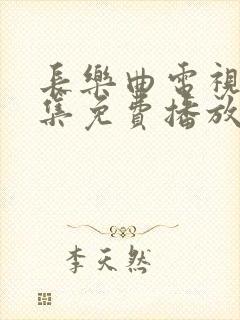 長樂曲電視
集免費播放
李天然